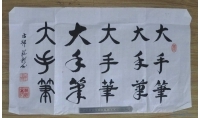 大手筆
大手筆
大手筆
大手筆
大手筆